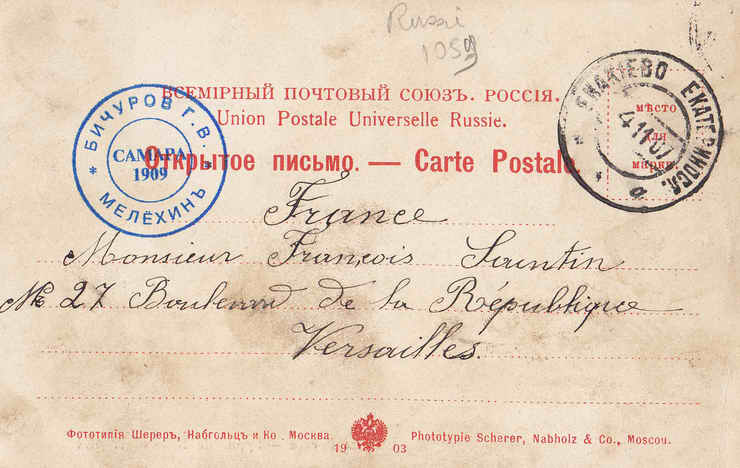 Russi
1059
ВСЕМІРНЫЙ ПОЧТОВЫЙ СОЮЗЪ. РОССІЯ.
Union Postale Universelle Russie.
Открытое письмо. — Carte Postale.
БИЧУРОВ Г.В.
САМАРА
1909
* МЕЛЁХИНЪ *
ЕНАКІЕВО ЕКАТЕРИНОСЛ.
4.11.07
а
мѣсто
для
марки.
France
Monsieur François Saintin
№ 27 Boulevard de la République
Versailles.
Фототипія Шереръ, Набгольцъ и Ко. Москва. 1903 Phototypie Scherer, Nabholz & Co., Moscou.